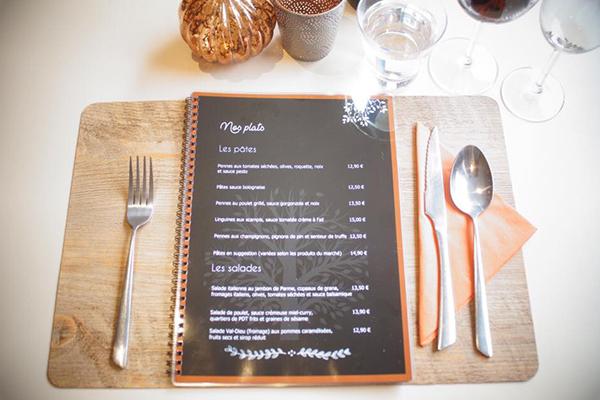 Nos plats
Les pâtes
Pennes aux tomates séchées, olives, roquette, noix 12,90 €
et sauce pesto
Pâtes sauce bolognaise 12,50 €
Pennes au poulet grillé, sauce gorgonzola et noix 13,50 €
Linguines aux scampis, sauce tomatée crème à l'ail 15,00 €
Pennes aux champignons, pignons de pin et senteur de truffe 13,50 €
Pâtes en suggestion (variées selon les produits du marché) 14,90 €
Les salades
Salade italienne au jambon de Parme, copeaux de grana, 13,50 €
fromages italiens, olives, tomates séchées et sauce balsamique
Salade de poulet, sauce crémeuse miel-curry, 13,90 €
quartiers de PDT frits et graines de sésame
Salade Val-Dieu (fromage) aux pommes caramélisées, 12,90 €
fruits secs et sirop réduit